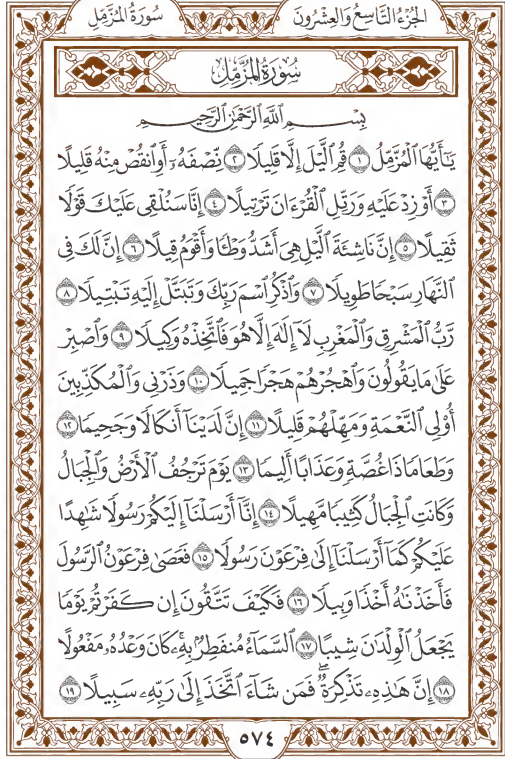 الجزء التاسع والعشرون سورة المزمل
سُورَةُ المُزَّمِّل
بِسْمِ ٱللَّهِ ٱلرَّحْمَٰنِ ٱلرَّحِيمِ
يَـٰٓأَيُّهَا ٱلْمُزَّمِّلُ ١ قُمِ ٱلَّيْلَ إِلَّا قَلِيلًا ٢ نِّصْفَهُۥٓ أَوِ ٱنقُصْ مِنْهُ قَلِيلًا
٣ أَوْ زِدْ عَلَيْهِ وَرَتِّلِ ٱلْقُرْءَانَ تَرْتِيلًا ٤ إِنَّا سَنُلْقِى عَلَيْكَ قَوْلًا
ثَقِيلًا ٥ إِنَّ نَاشِئَةَ ٱلَّيْلِ هِىَ أَشَدُّ وَطْـًٔا وَأَقْوَمُ قِيلًا ٦ إِنَّ لَكَ فِى
ٱلنَّهَارِ سَبْحًا طَوِيلًا ٧ وَٱذْكُرِ ٱسْمَ رَبِّكَ وَتَبَتَّلْ إِلَيْهِ تَبْتِيلًا ٨
رَّبُّ ٱلْمَشْرِقِ وَٱلْمَغْرِبِ لَآ إِلَـٰهَ إِلَّا هُوَ فَٱتَّخِذْهُ وَكِيلًا ٩ وَٱصْبِرْ
عَلَىٰ مَا يَقُولُونَ وَٱهْجُرْهُمْ هَجْرًا جَمِيلًا ١٠ وَذَرْنِى وَٱلْمُكَذِّبِينَ
أُو۟لِى ٱلنَّعْمَةِ وَمَهِّلْهُمْ قَلِيلًا ١١ إِنَّ لَدَيْنَآ أَنكَالًا وَجَحِيمًا ١٢
وَطَعَامًا ذَا غُصَّةٍ وَعَذَابًا أَلِيمًا ١٣ يَوْمَ تَرْجُفُ ٱلْأَرْضُ وَٱلْجِبَالُ
وَكَانَتِ ٱلْجِبَالُ كَثِيبًا مَّهِيلًا ١٤ إِنَّآ أَرْسَلْنَآ إِلَيْكُمْ رَسُولًا شَـٰهِدًا
عَلَيْكُمْ كَمَآ أَرْسَلْنَآ إِلَىٰ فِرْعَوْنَ رَسُولًا ١٥ فَعَصَىٰ فِرْعَوْنُ ٱلرَّسُولَ
فَأَخَذْنَـٰهُ أَخْذًا وَبِيلًا ١٦ فَكَيْفَ تَتَّقُونَ إِن كَفَرْتُمْ يَوْمًا
يَجْعَلُ ٱلْوِلْدَٰنَ شِيبًا ١٧ ٱلسَّمَآءُ مُنفَطِرٌۢ بِهِۦ ۚ كَانَ وَعْدُهُۥ مَفْعُولًا
١٨ إِنَّ هَـٰذِهِۦ تَذْكِرَةٌ ۖ فَمَن شَآءَ ٱتَّخَذَ إِلَىٰ رَبِّهِۦ سَبِيلًا ١٩
٥٧٤